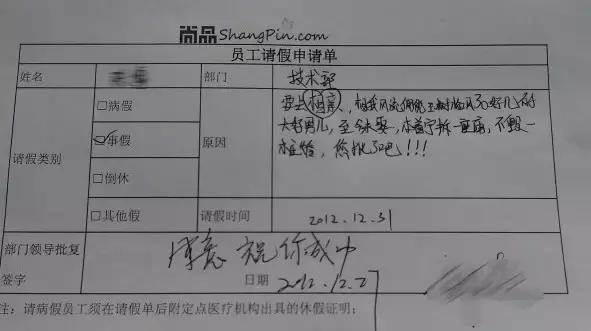 尚品 ShangPin.com
员工请假申请单
姓名 部门 技术部
请假类别
□病假
□事假
□倒休
□其他假
原因
要去相亲，想我风流倜傥玉树临风30好几的
大好男儿，至今未娶，本着宁拆一座庙，不毁一
桩婚，您批了吧!!!
请假时间 2012.12.31
部门领导批复
签字
祝你成功
日期 2012.12.27
注：请病假员工须在请假单后附定点医疗机构出具的休假证明；